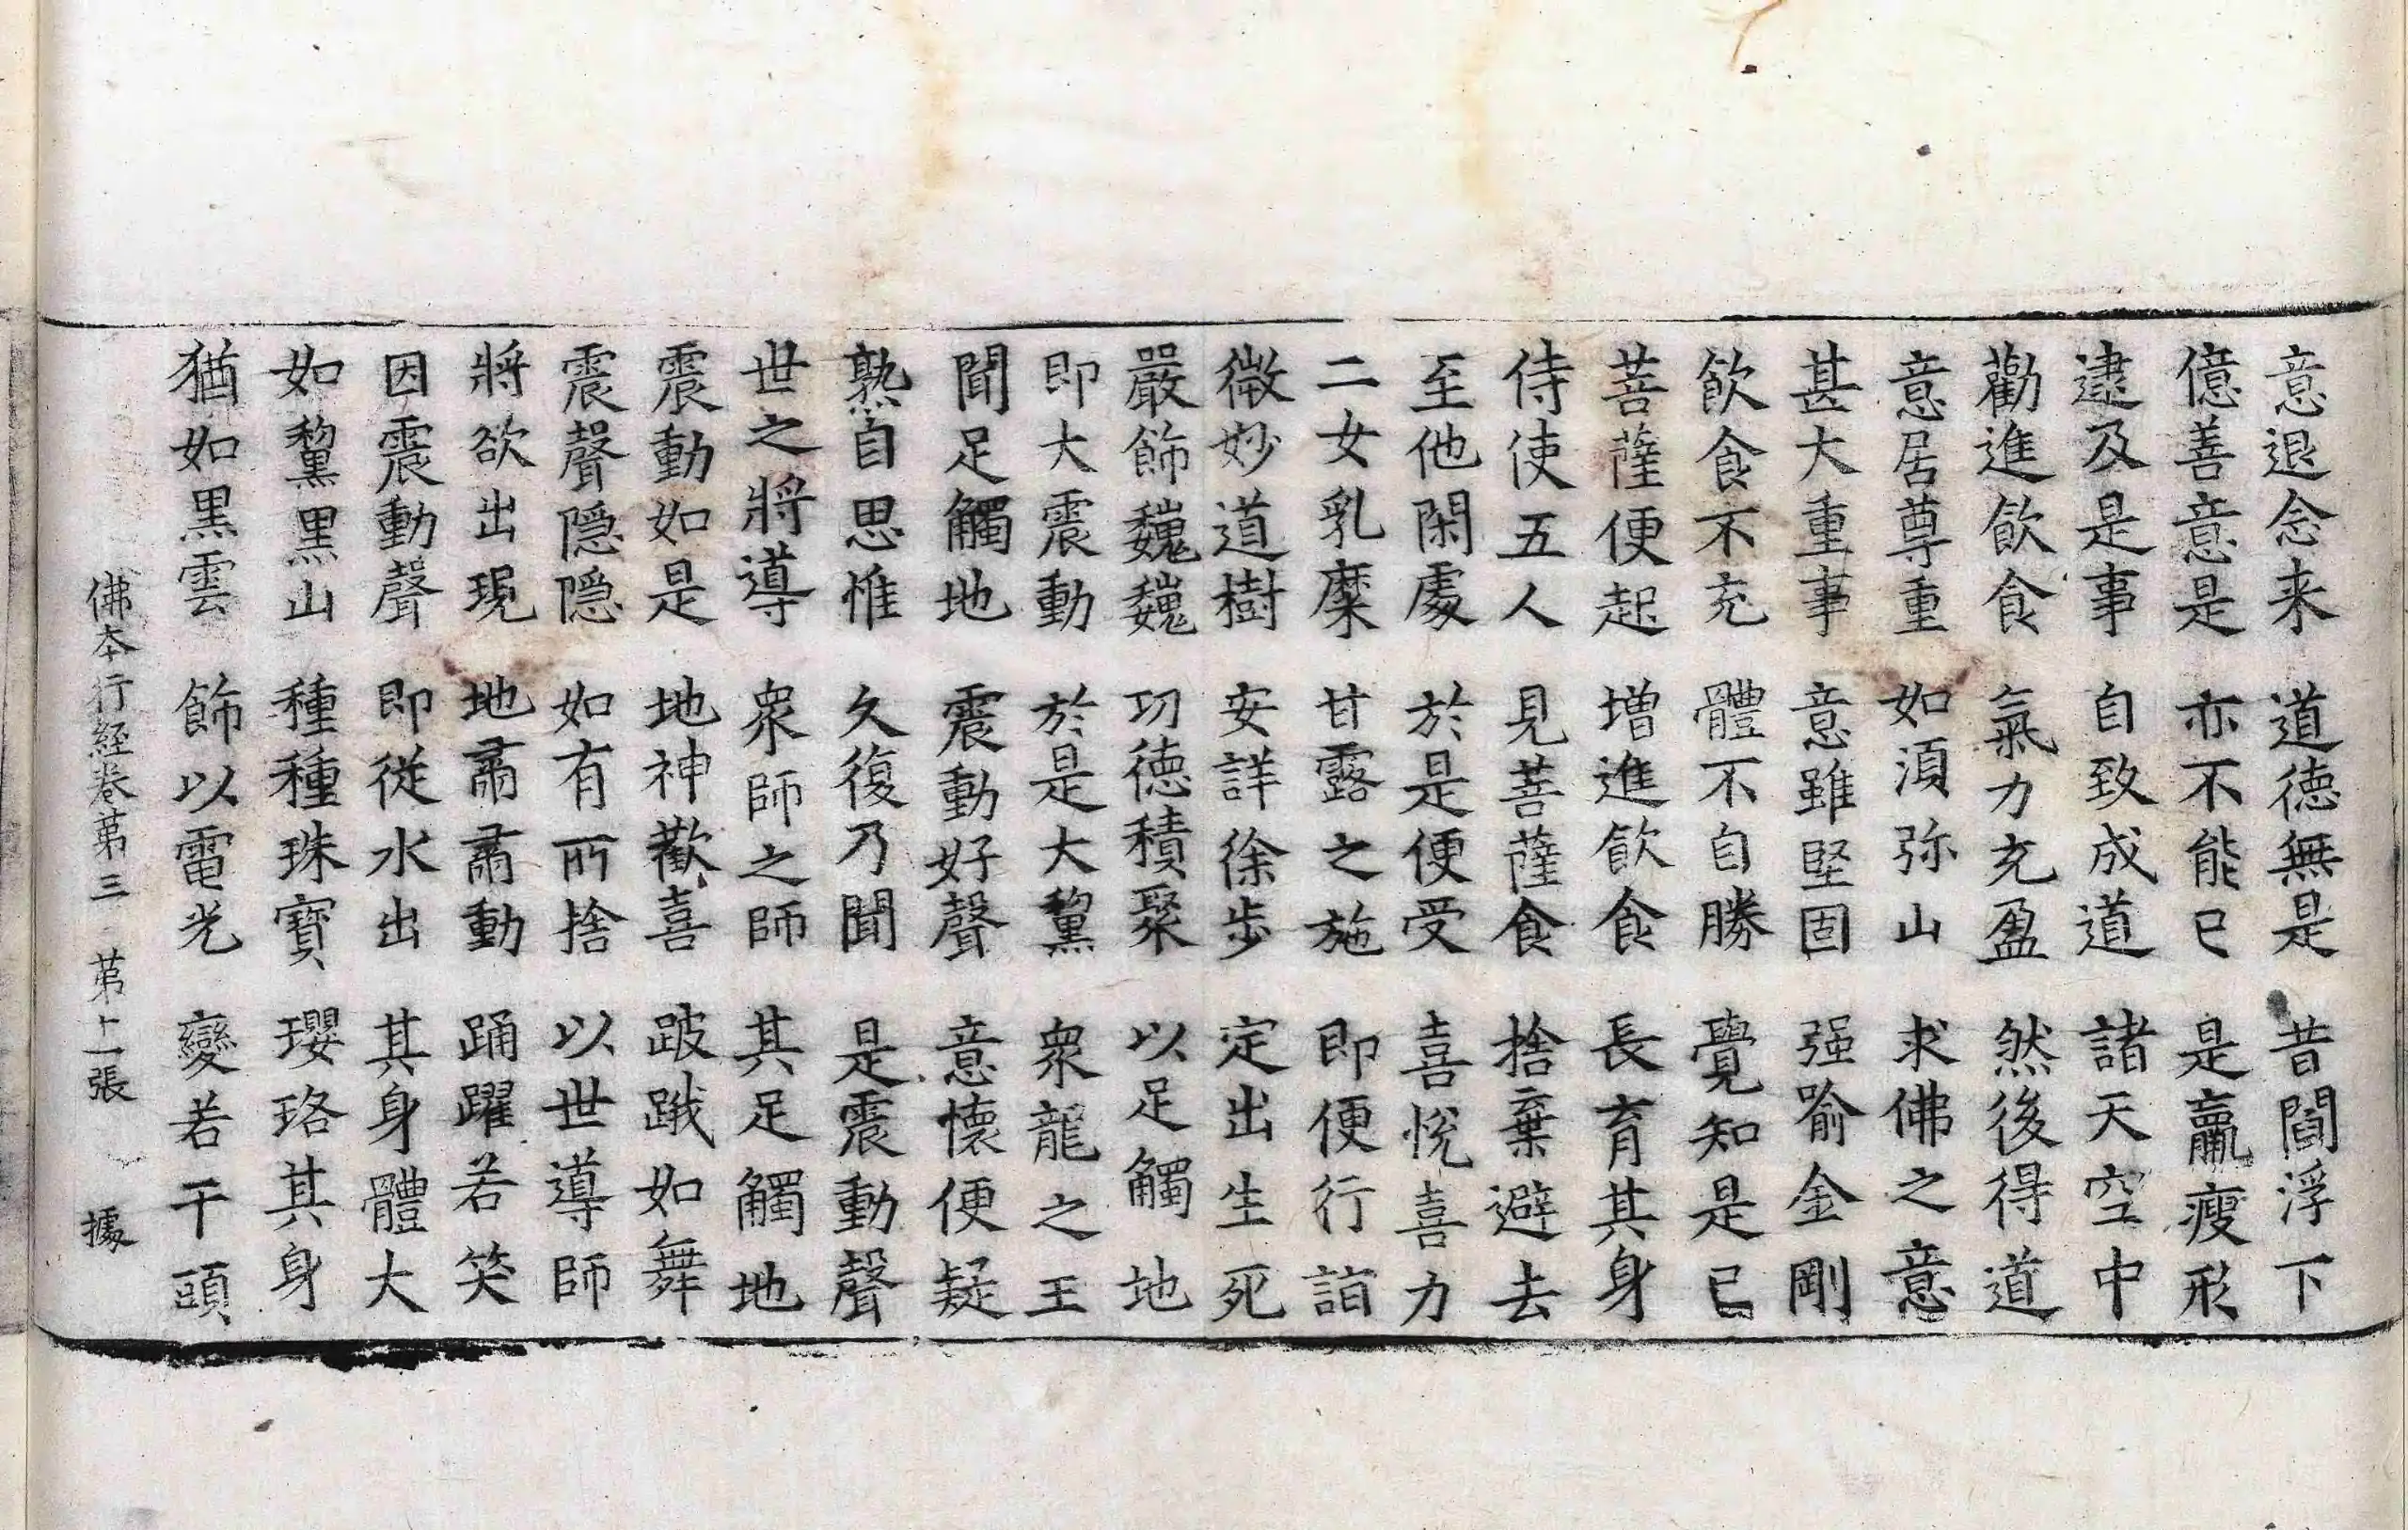 意退念来 道徳無是 昔閻浮下
億善意是 亦不能已 是羸瘦形
逮及是事 自致成道 諸天空中
勸進飲食 氣力充盈 然後得道
意居尊重 如湏弥山 求佛之意
甚大重事 意雖堅固 强喻金剛
飲食不充 體不自勝 覺知是已
菩薩便起 増進飲食 長育其身
侍使五人 見菩薩食 捨棄避去
至他閑處 於是便受 喜悅喜力
二女乳糜 甘露之施 即便行詣
微妙道樹 安詳徐步 定出生死
嚴飾巍巍 功德積聚 以足觸地
即大震動 於是大黧 衆龍之王
聞足觸地 震動好聲 意懷便疑
熟自思惟 久復乃聞 是震動聲
世之將導 衆師之師 其足觸地
震動如是 地神歡喜 跛蹴如舞
震聲隱隱 如有所捨 以世導師
將欲出現 地肅肅動 踊躍若笑
因震動聲 即從水出 其身體大
如黧黑山 種種珠寶 瓔珞其身
猶如黒雲 飾以電光 變若干頭
佛本行経巻苐三 苐十一張 據